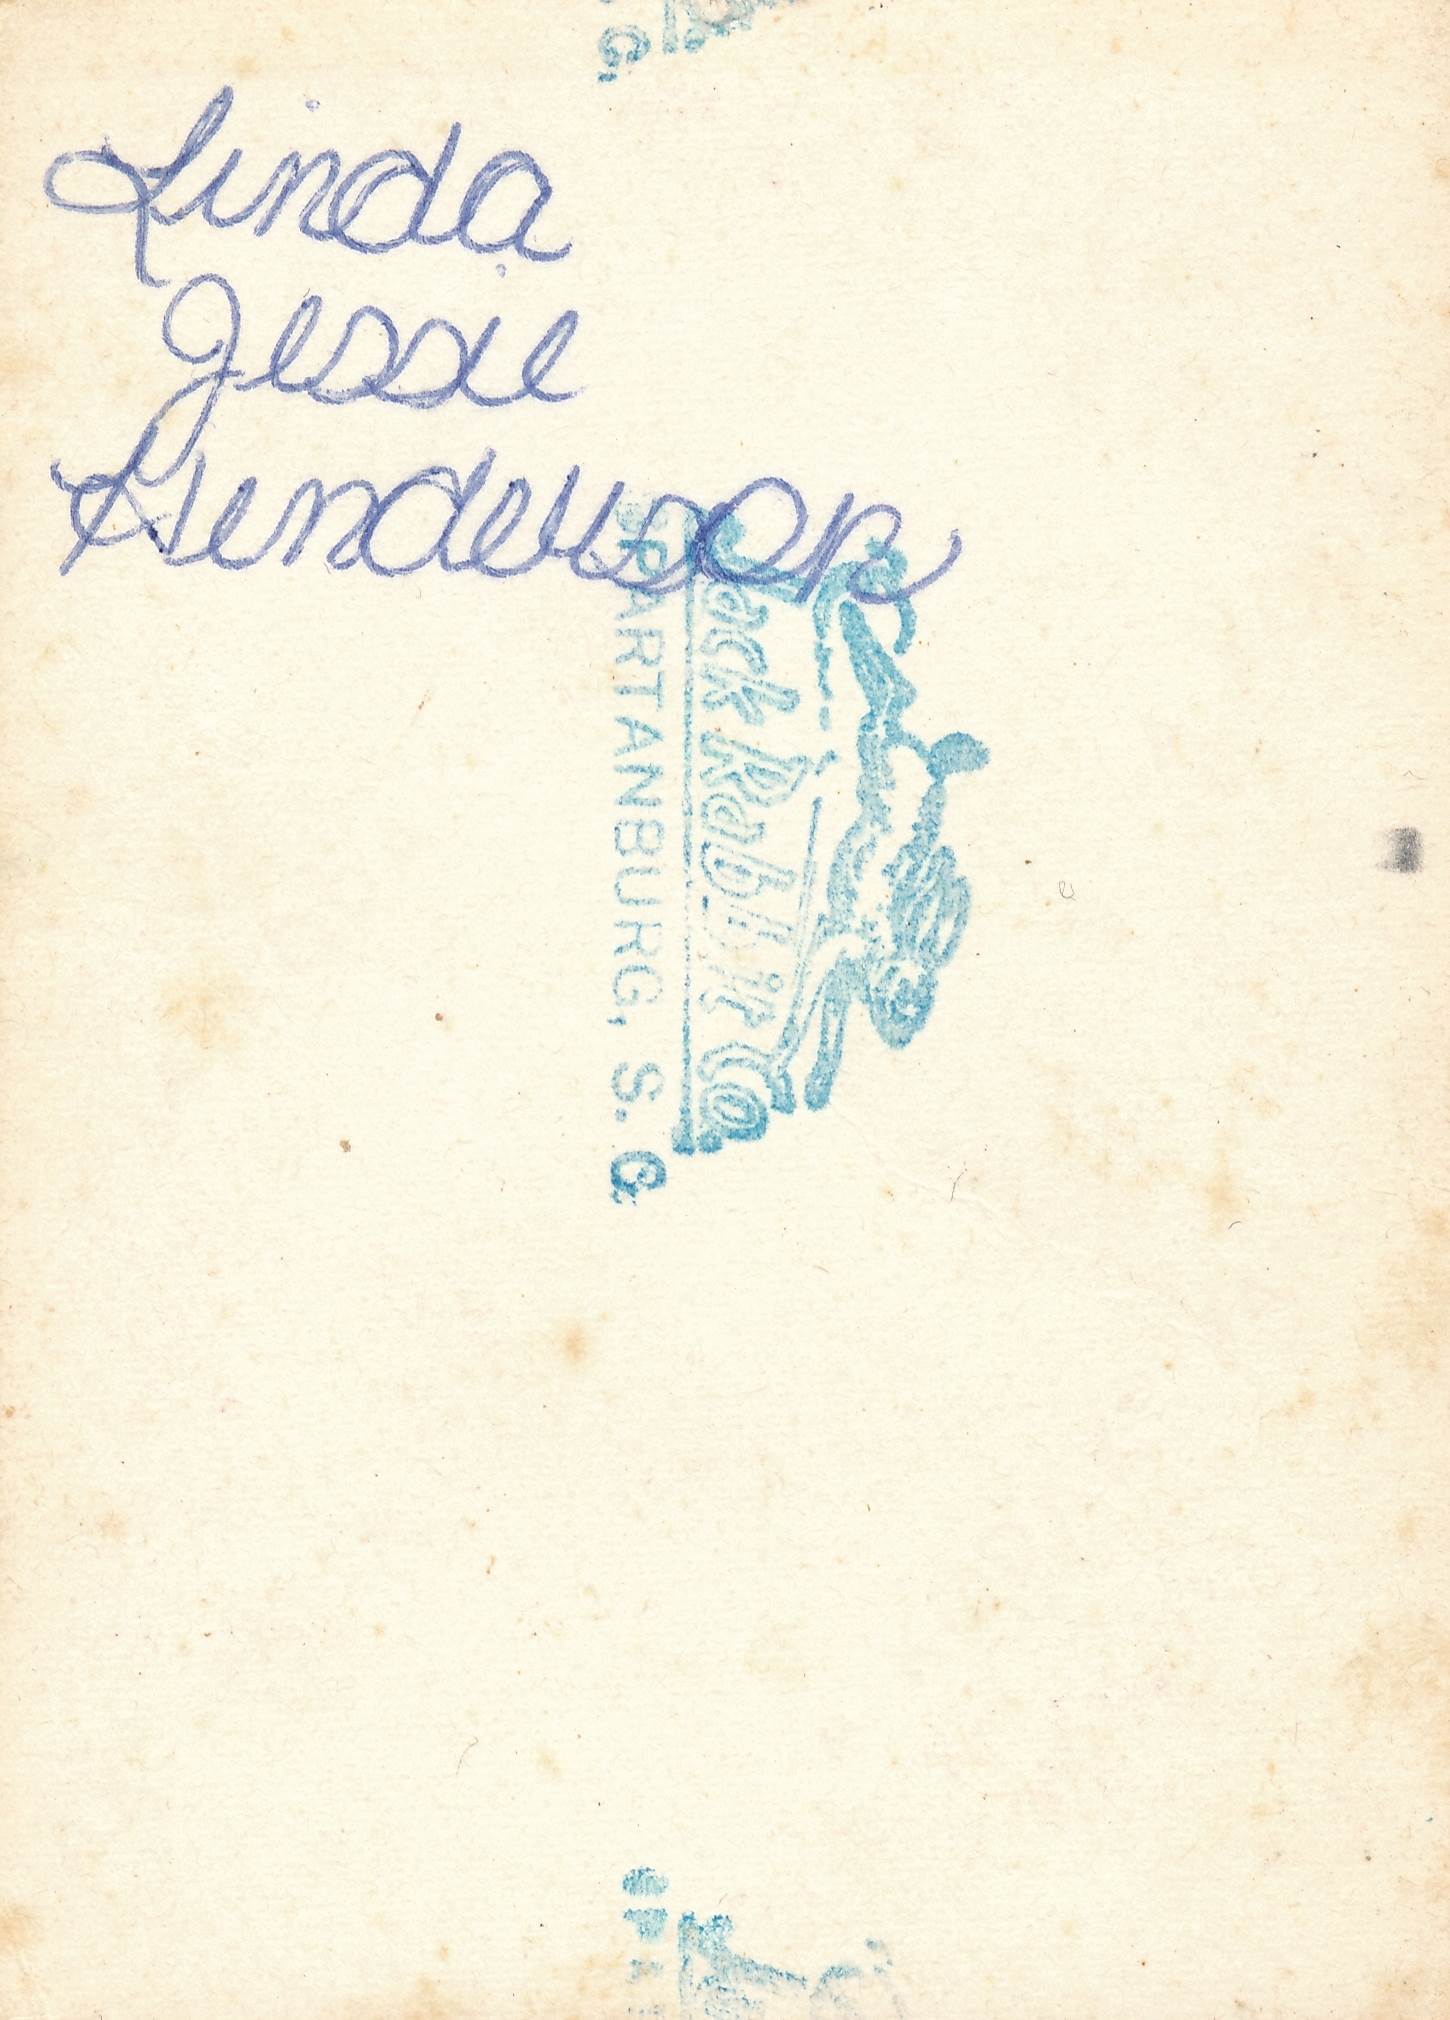 C.
Linda
Jessie
Henderson
Jack Rabbit Co
SPARTANBURG, S. C.
SPA